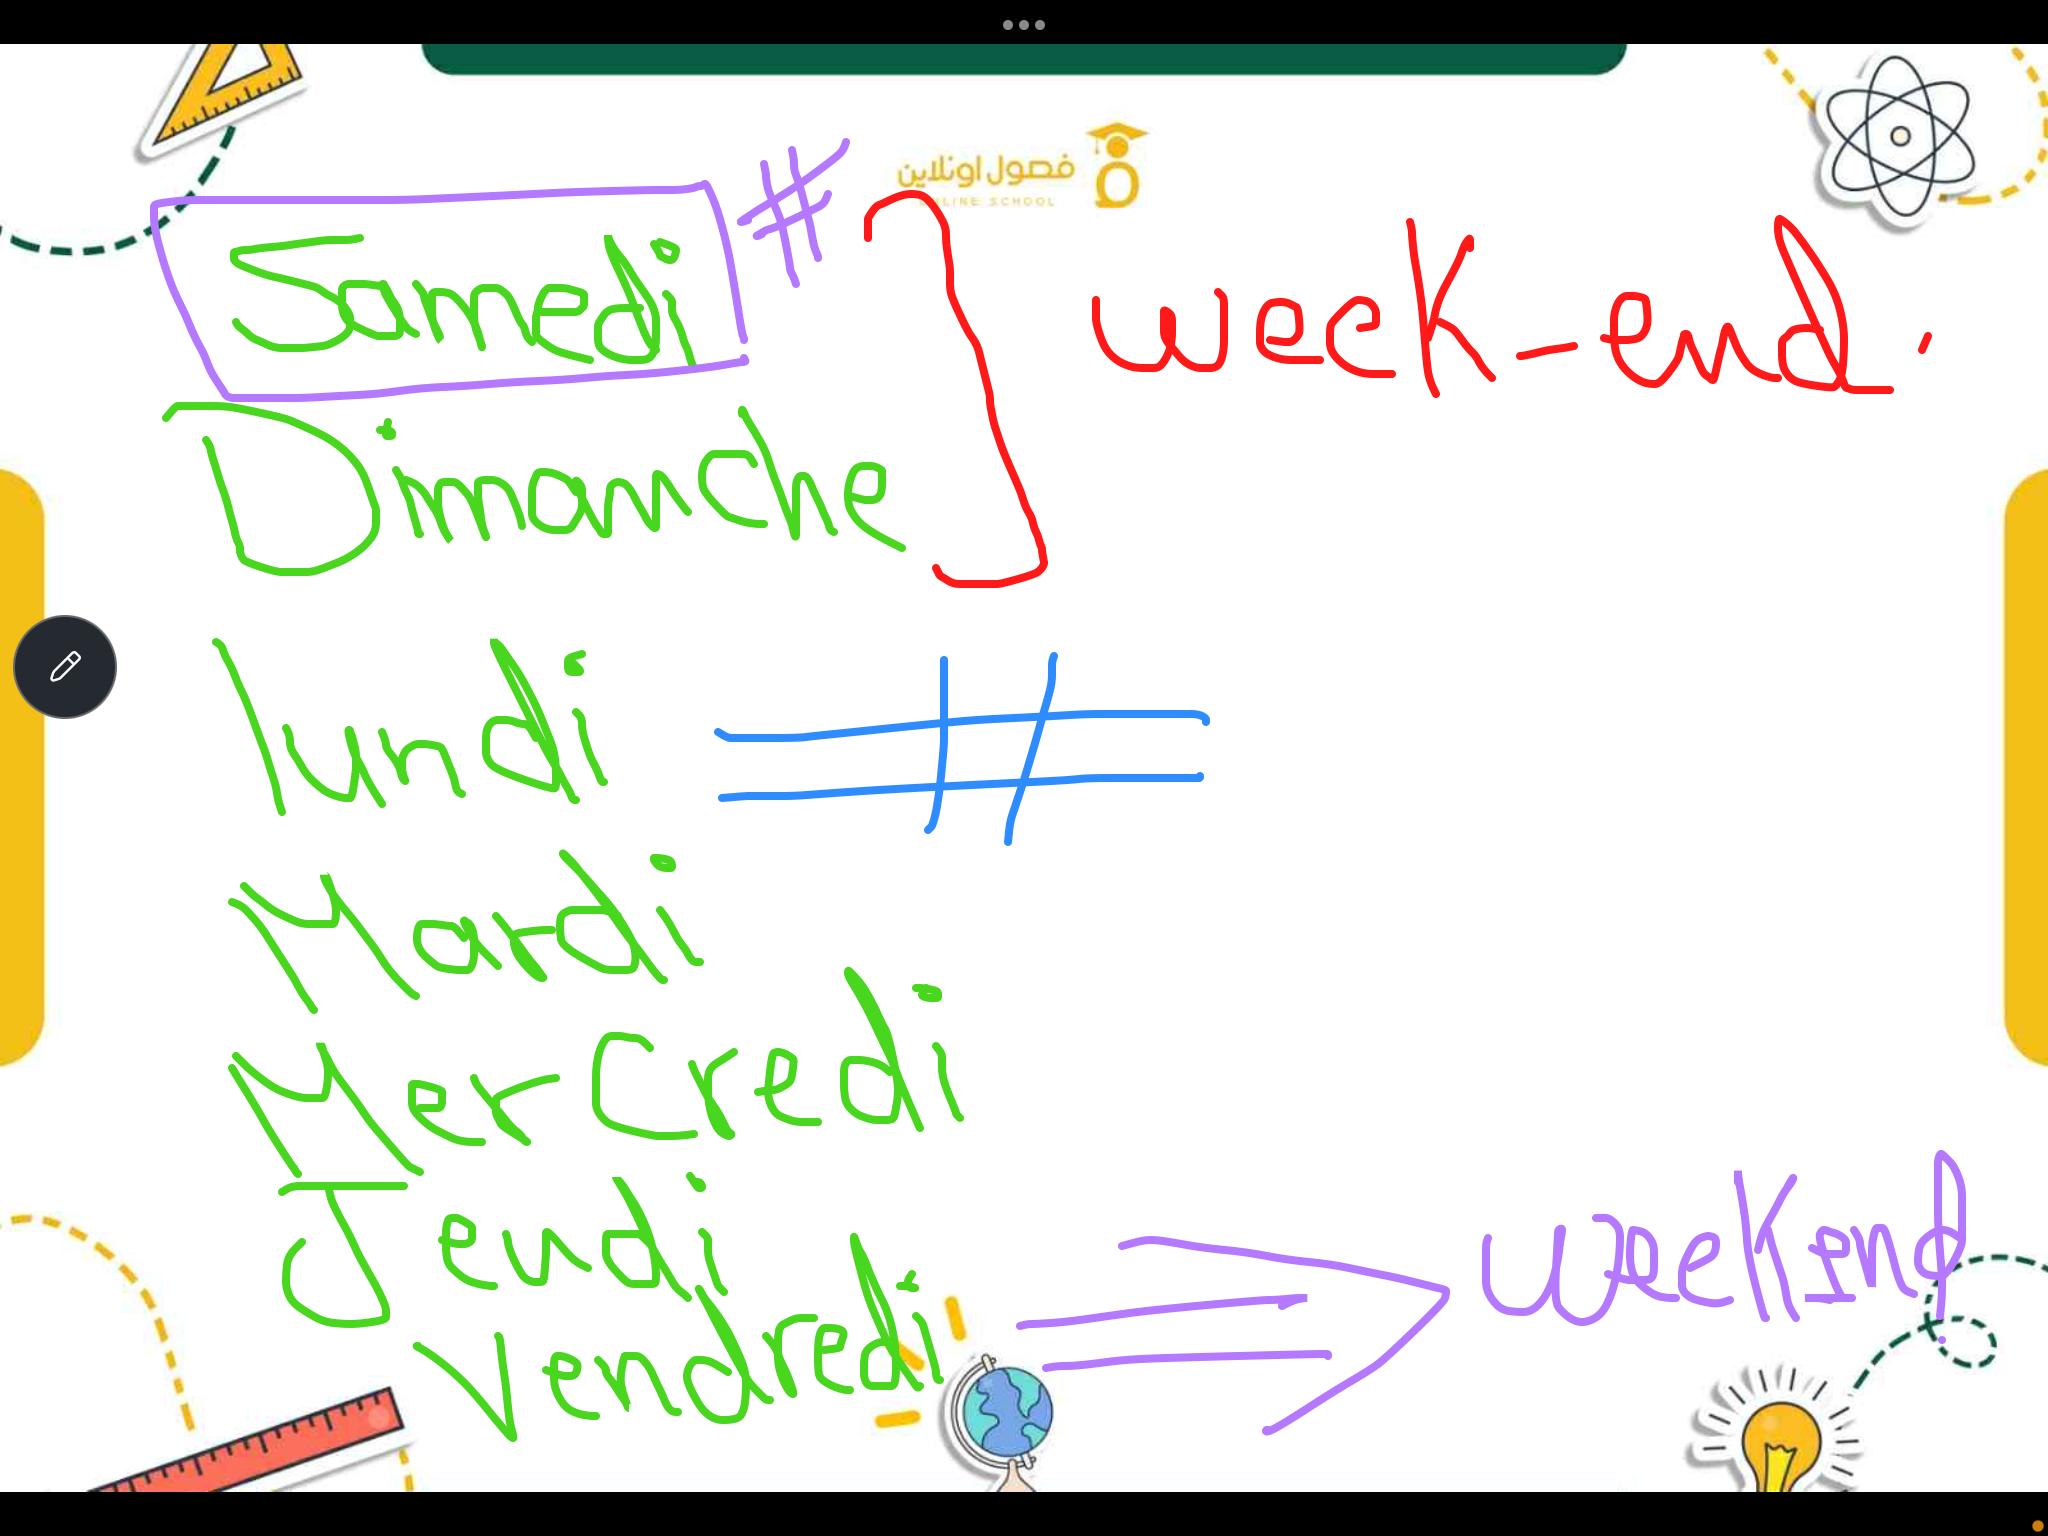 فصول اونلاين
ONLINE SCHOOL
Samedi #
week-end.
Dimanche
lundi #
Mardi
MerCredi
Jeudi
Vendredi
weekend.